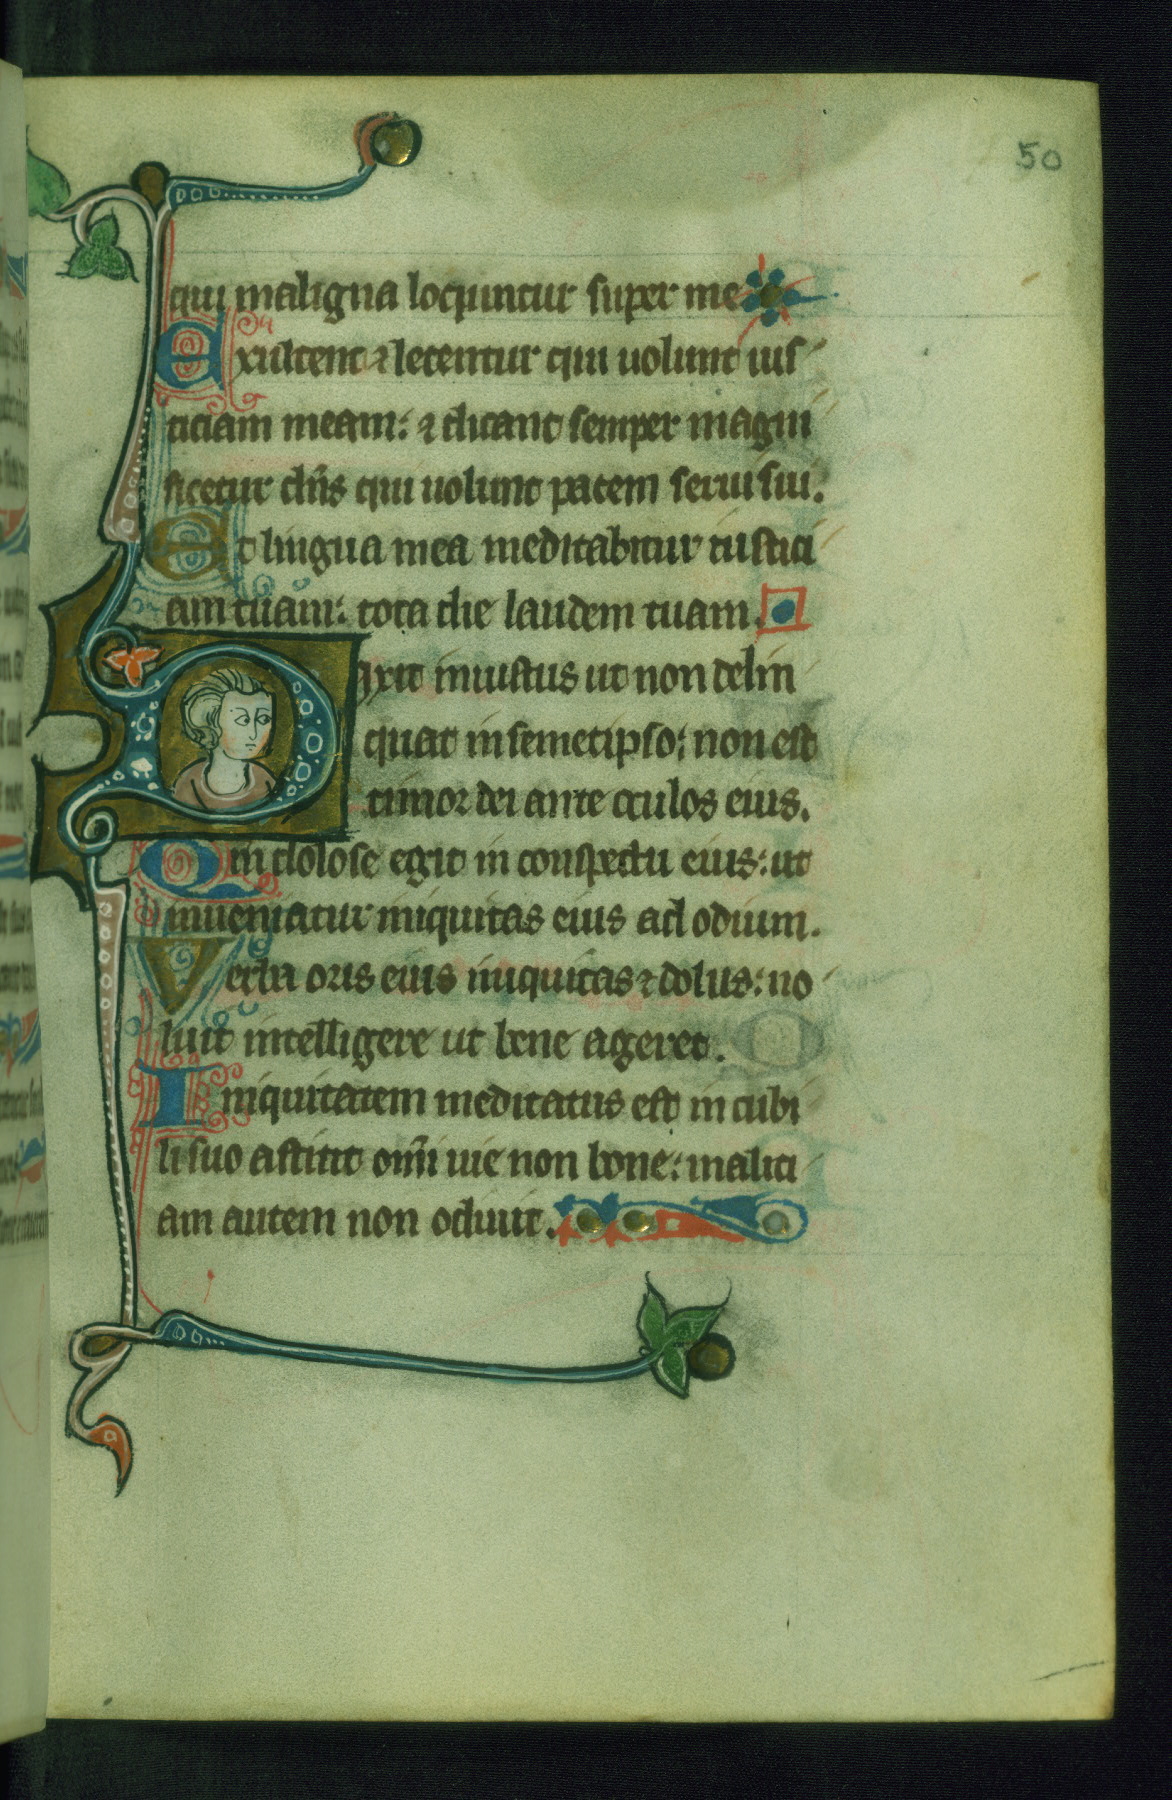 50
qui maligna locuntur super me
Exultent ⁊ letentur qui uolunt ius
ticiam meam: ⁊ dicant semper magni
ficetur dñs qui uolunt pacem serui sui.
Et lingua mea meditabitur iustici
am tuam: tota die laudem tuam.
Dixit iniustus ut non delin
quat in semetipso: non est
timor dei ante oculos eius.
Qm dolose egit in conspectu eius: ut
inueniatur iniquitas eius ad odium.
Verba oris eius iniquitas ⁊ dolus: no
luit intelligere ut bene ageret.
Iniquitatem meditatus est in cubi
li suo astitit omī uie non bone: malici
am autem non odiuit.